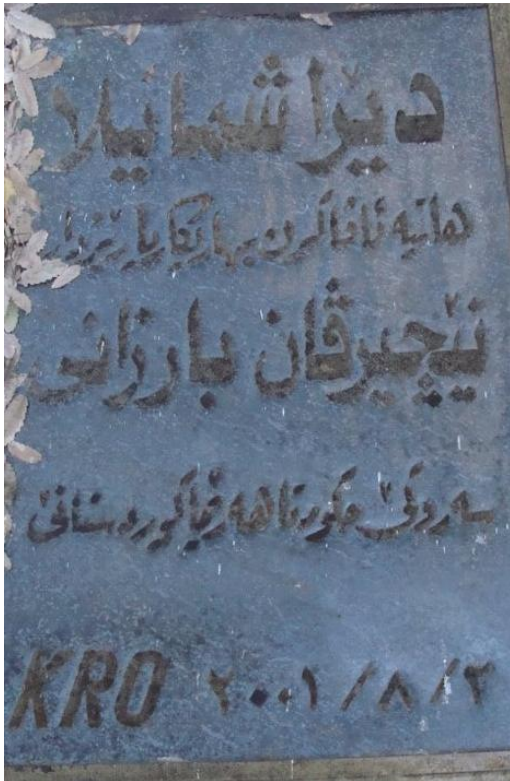 دێرا شمانیلا
هاتیە ئافاكرن بهاریكاریا رێزدار
نێچیرڤان بارزانی
سەروكێ حكومەتا هەرێما كوردستانێ
KRO ٢٠٠١/٨/٢